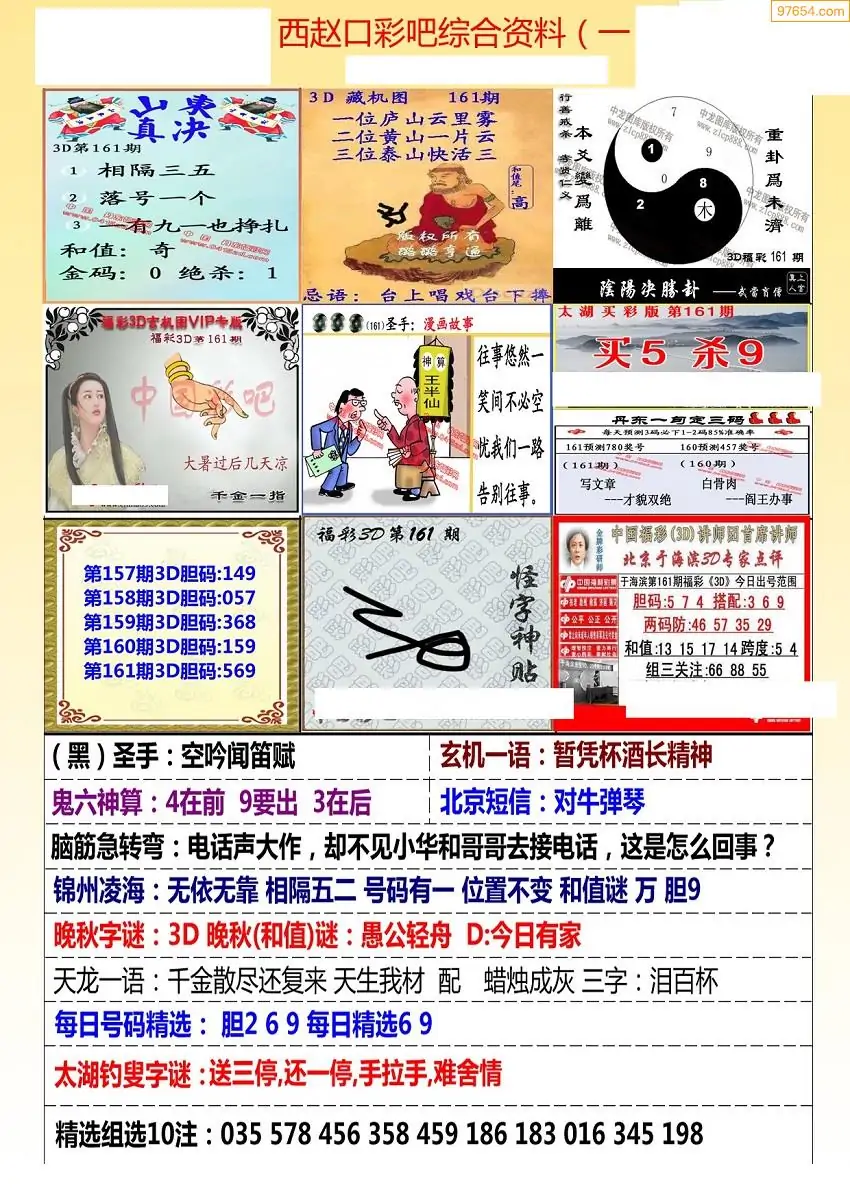 97654.com
西赵口彩吧综合资料（一
山东
真决
3D第161期
1 相隔三五
2 落号一个
3 一有九一也挣扎
和值：奇
金码：0 绝杀：1
3D 藏机图 161期
一位庐山云里雾
二位黄山一片云
三位泰山快活三
和值尾：高
版权所有
忌语：台上唱戏台下捧
行善戒杀
本爻變爲離
重卦爲未濟
7
1
9
0
8
2
木
中龙图库版权所有
www.zlcp888.com
3D福彩 161 期
陰陽决勝卦 ——武當肖僧
福彩3D玄机图VIP专版
福彩3D第161期
中国彩吧
大暑过后几天凉
千金一指
(161)圣手：漫画故事
神算
王半仙
往事悠然一
笑间不必空
忧我们一路
告别往事。
太湖买彩版 第161期
买5 杀9
丹东一句定三码
每天预测3码必下1-2码85%准确率
161预测780奖号 160预测457奖号
(161期) (160期)
写文章 白骨肉
---才貌双绝 ---阎王办事
第157期3D胆码:149
第158期3D胆码:057
第159期3D胆码:368
第160期3D胆码:159
第161期3D胆码:569
福彩3D第161 期
怪字神贴
中国福彩(3D)讲师团首席讲师
北京于海滨3D专家点评
金牌彩研师
中国福利彩票
于海滨第161期福彩《3D》今日出号范围
胆码:5 7 4 搭配:3 6 9
两码防:46 57 35 29
和值:13 15 17 14 跨度:5 4
组三关注:66 88 55
公平 公正 公开
(黑)圣手：空吟闻笛赋
玄机一语：暂凭杯酒长精神
鬼六神算：4在前 9要出 3在后
北京短信：对牛弹琴
脑筋急转弯：电话声大作，却不见小华和哥哥去接电话，这是怎么回事？
锦州凌海：无依无靠 相隔五二 号码有一 位置不变 和值谜 万 胆9
晚秋字谜：3D 晚秋(和值)谜：愚公轻舟 D:今日有家
天龙一语：千金散尽还复来 天生我材 配 蜡烛成灰 三字：泪百杯
每日号码精选： 胆2 6 9 每日精选6 9
太湖钓叟字谜：送三停,还一停,手拉手,难舍情
精选组选10注：035 578 456 358 459 186 183 016 345 198